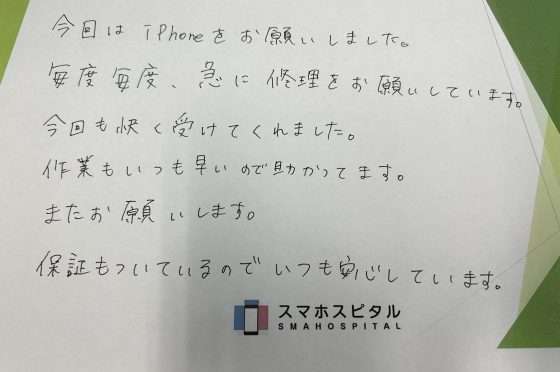 今回は iPhoneをお願いしました。
毎度毎度、急に修理をお願いしています。
今回も快く受けてくれました。
作業もいつも早いので助かってます。
またお願いします。
保証もついているのでいつも安心しています。
スマホスピタル
SMAHOSPITAL